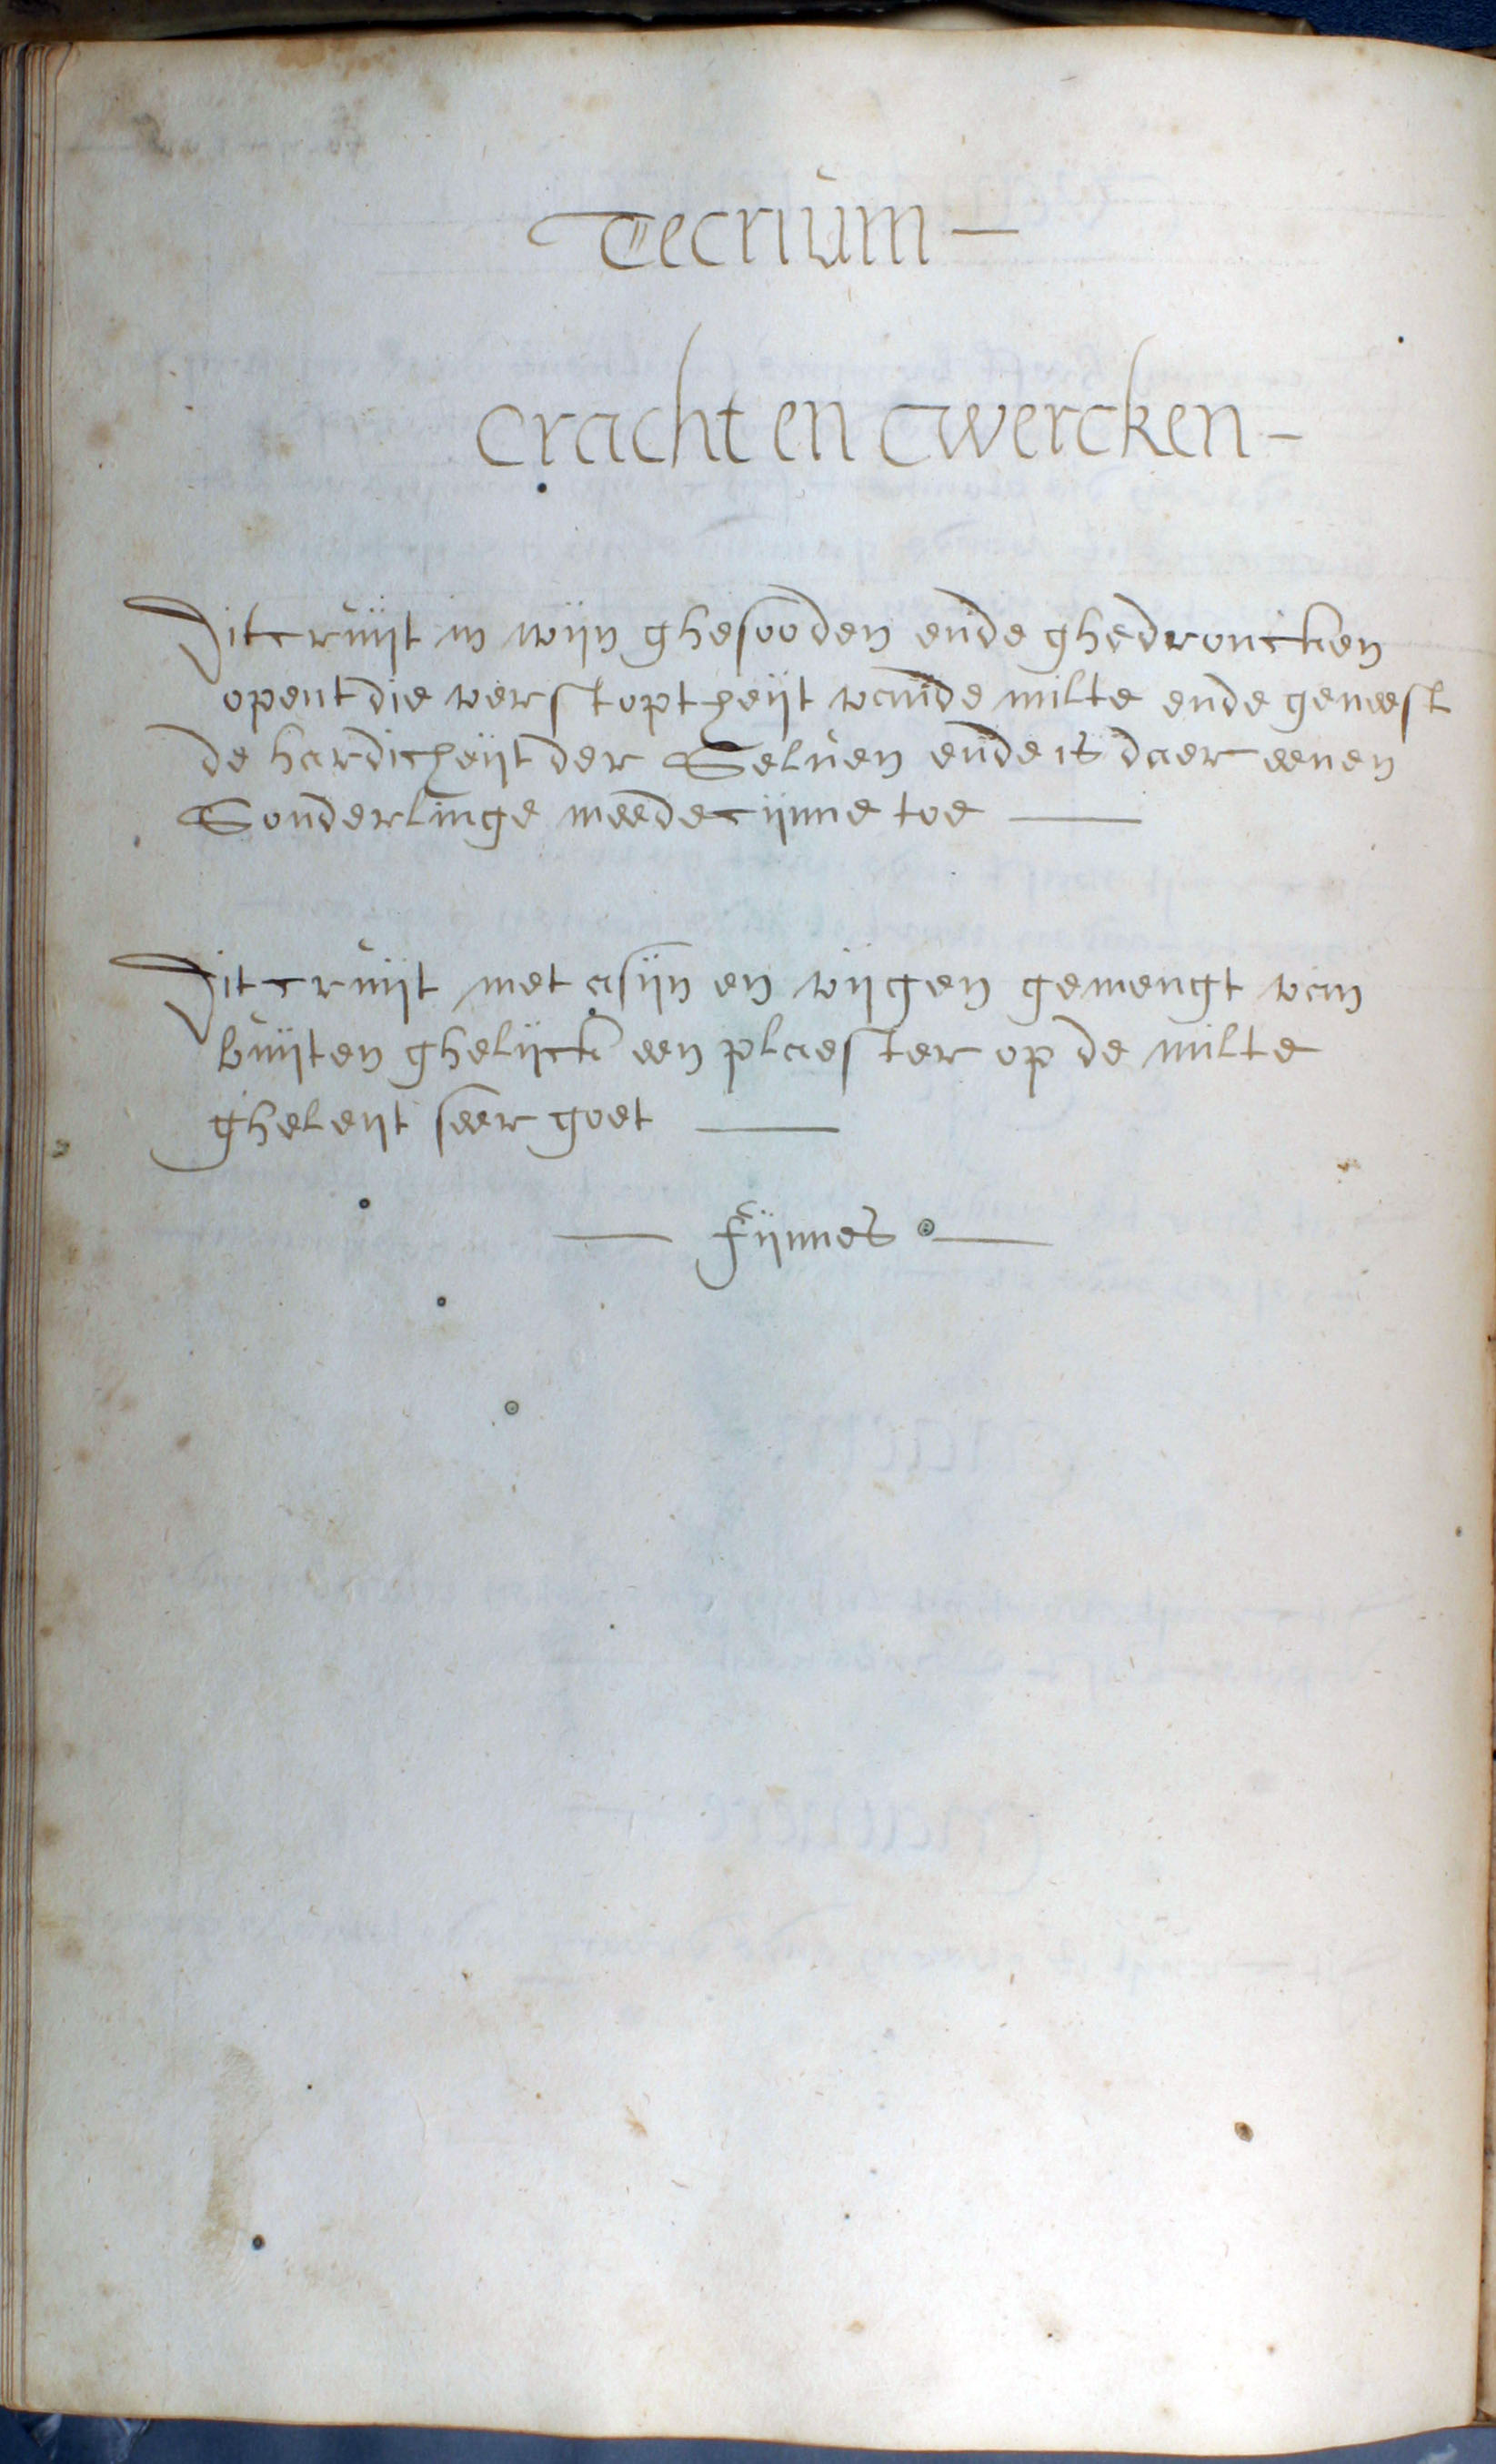 Tecrium —
Cracht en Twercken —
Dit cruijt in wijn ghesooden ende ghedroncken
opent die verstoptheijt vande milte ende geneest
de hardicheijt der Selven ende is daer eenen
Sonderlinge meedecijnne toe —
Dit cruijt met asijn en vijgen gemengt van
buijten ghelijck een plaester op de milte
gheleijt seer goet —
— fijnnes —